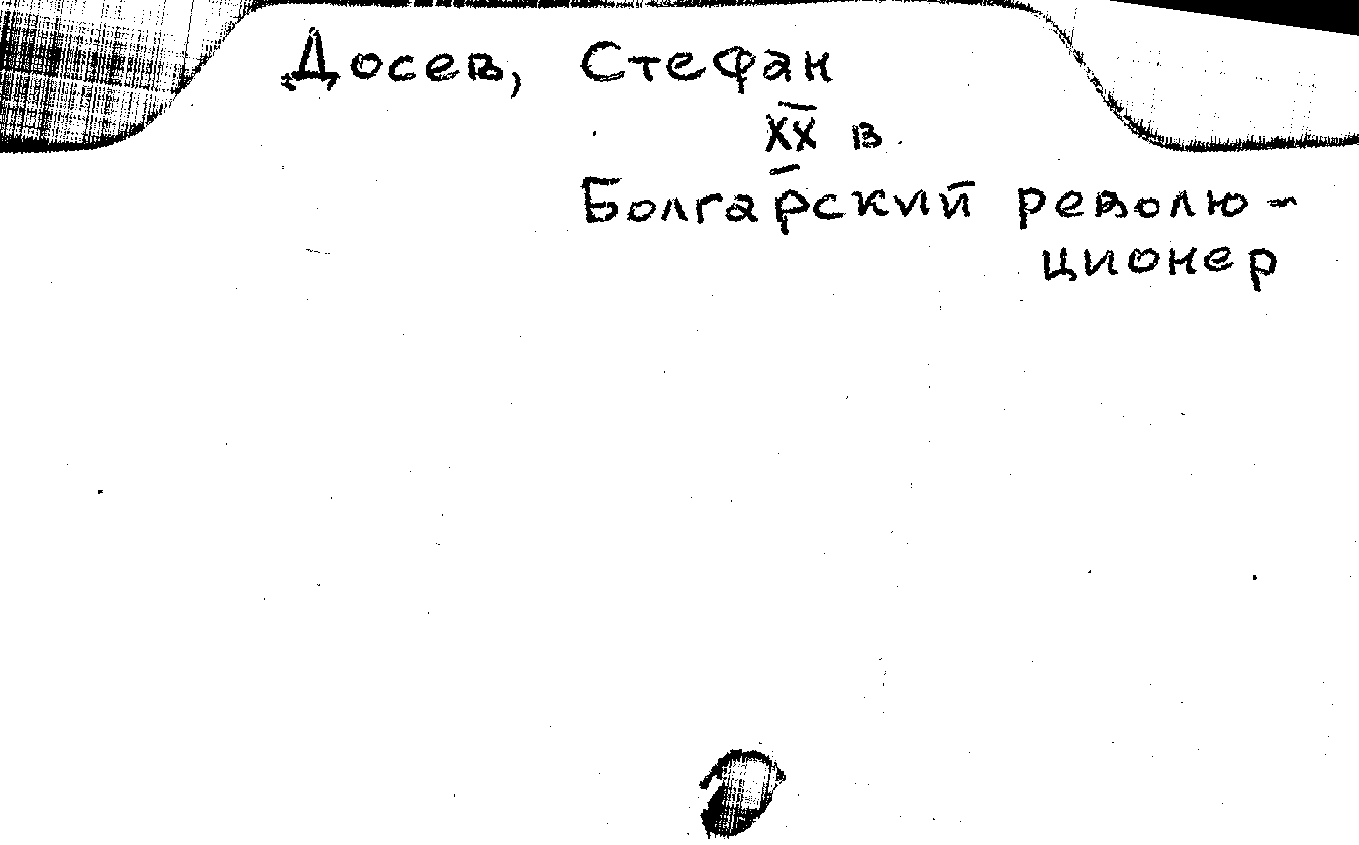 Досев, Стефан
XX в
Болгарский револю-
ционер